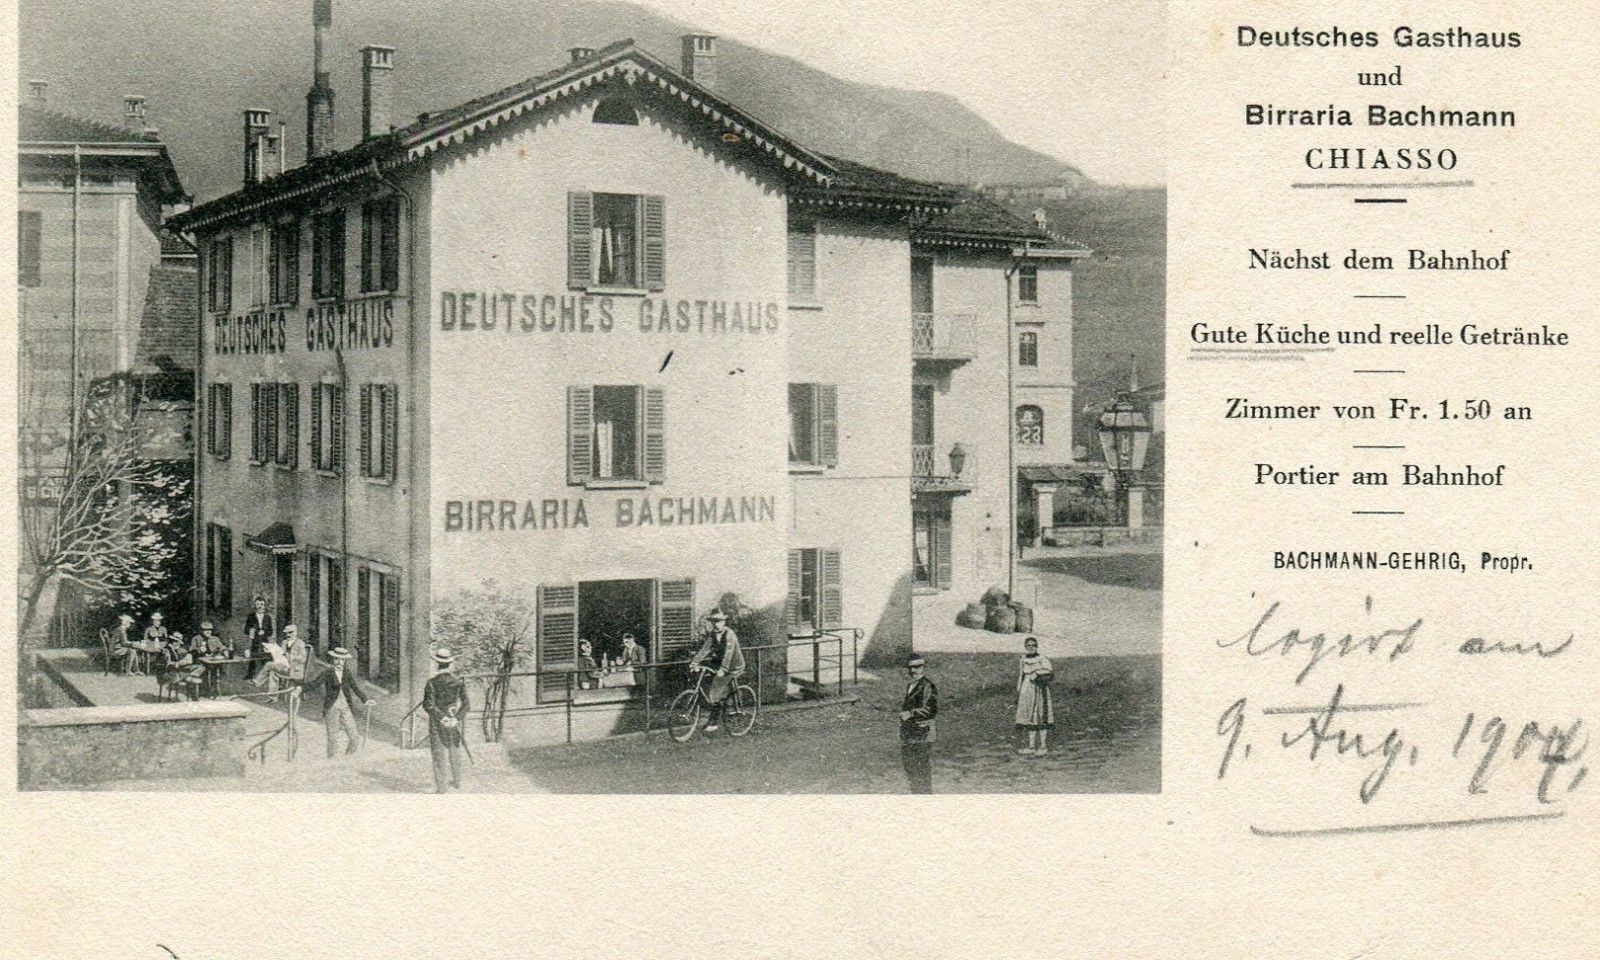 Deutsches Gasthaus
und
Birraria Bachmann
CHIASSO
Nächst dem Bahnhof
Gute Küche und reelle Getränke
Zimmer von Fr. 1.50 an
Portier am Bahnhof
BACHMANN-GEHRIG, Propr.
logirt am
9. Aug. 1907,
DEUTSCHES GASTHAUS
DEUTSCHES GASTHAUS
BIRRARIA BACHMANN